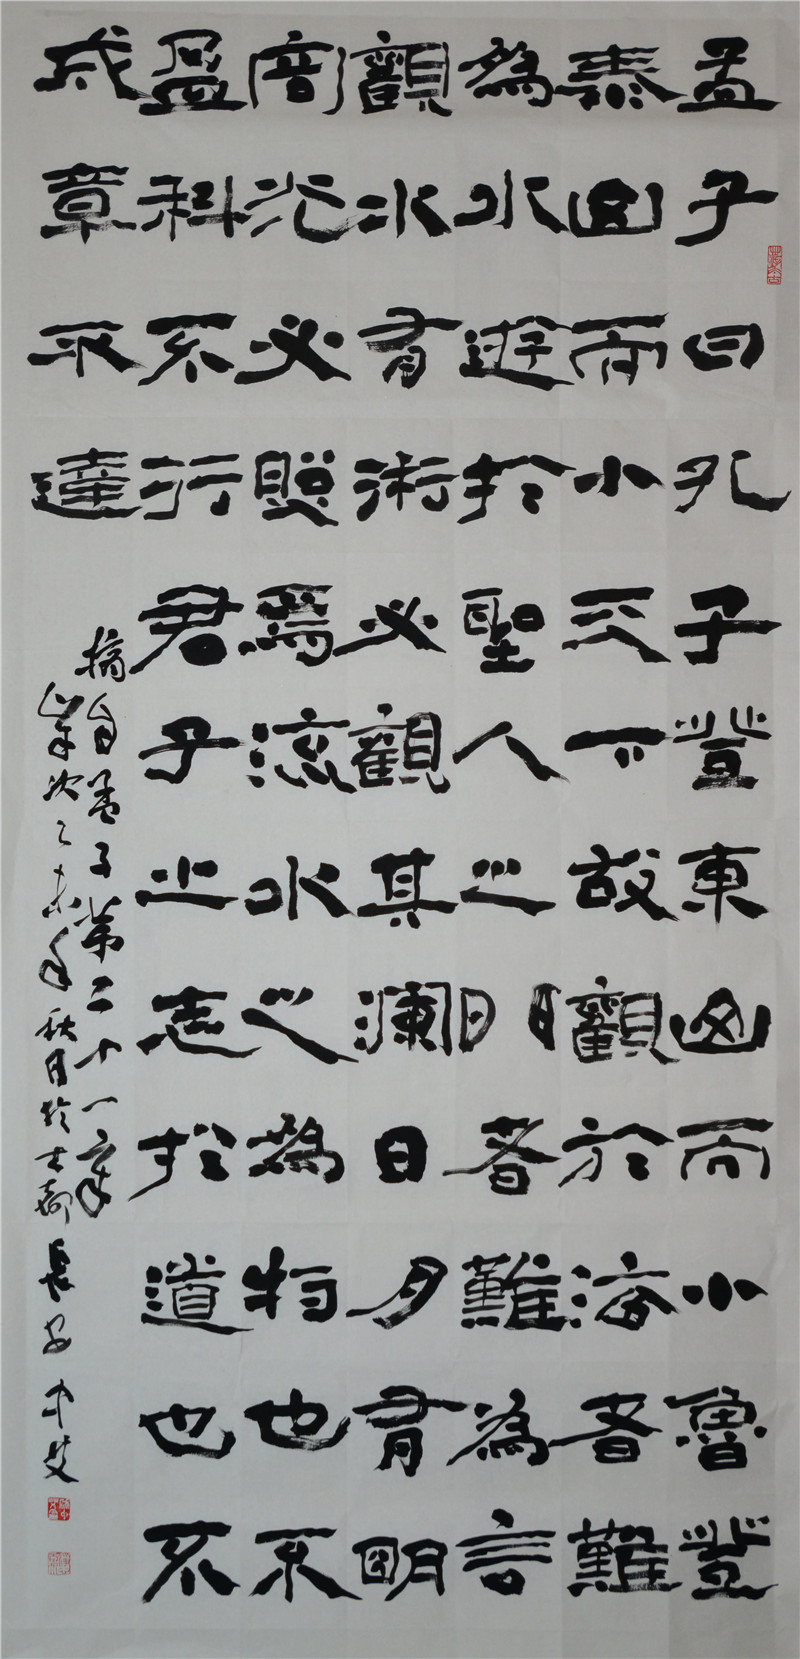 孟子曰孔子登東山而小魯登
泰山而小天下故觀於海者難
為水遊於聖人之門者難為言
觀水有術必觀其瀾日月有明
容光必照焉流水之為物也不
盈科不行君子之志於道也不
成章不達
摘自孟子第二十一章
歲次乙未年秋月於古都長安